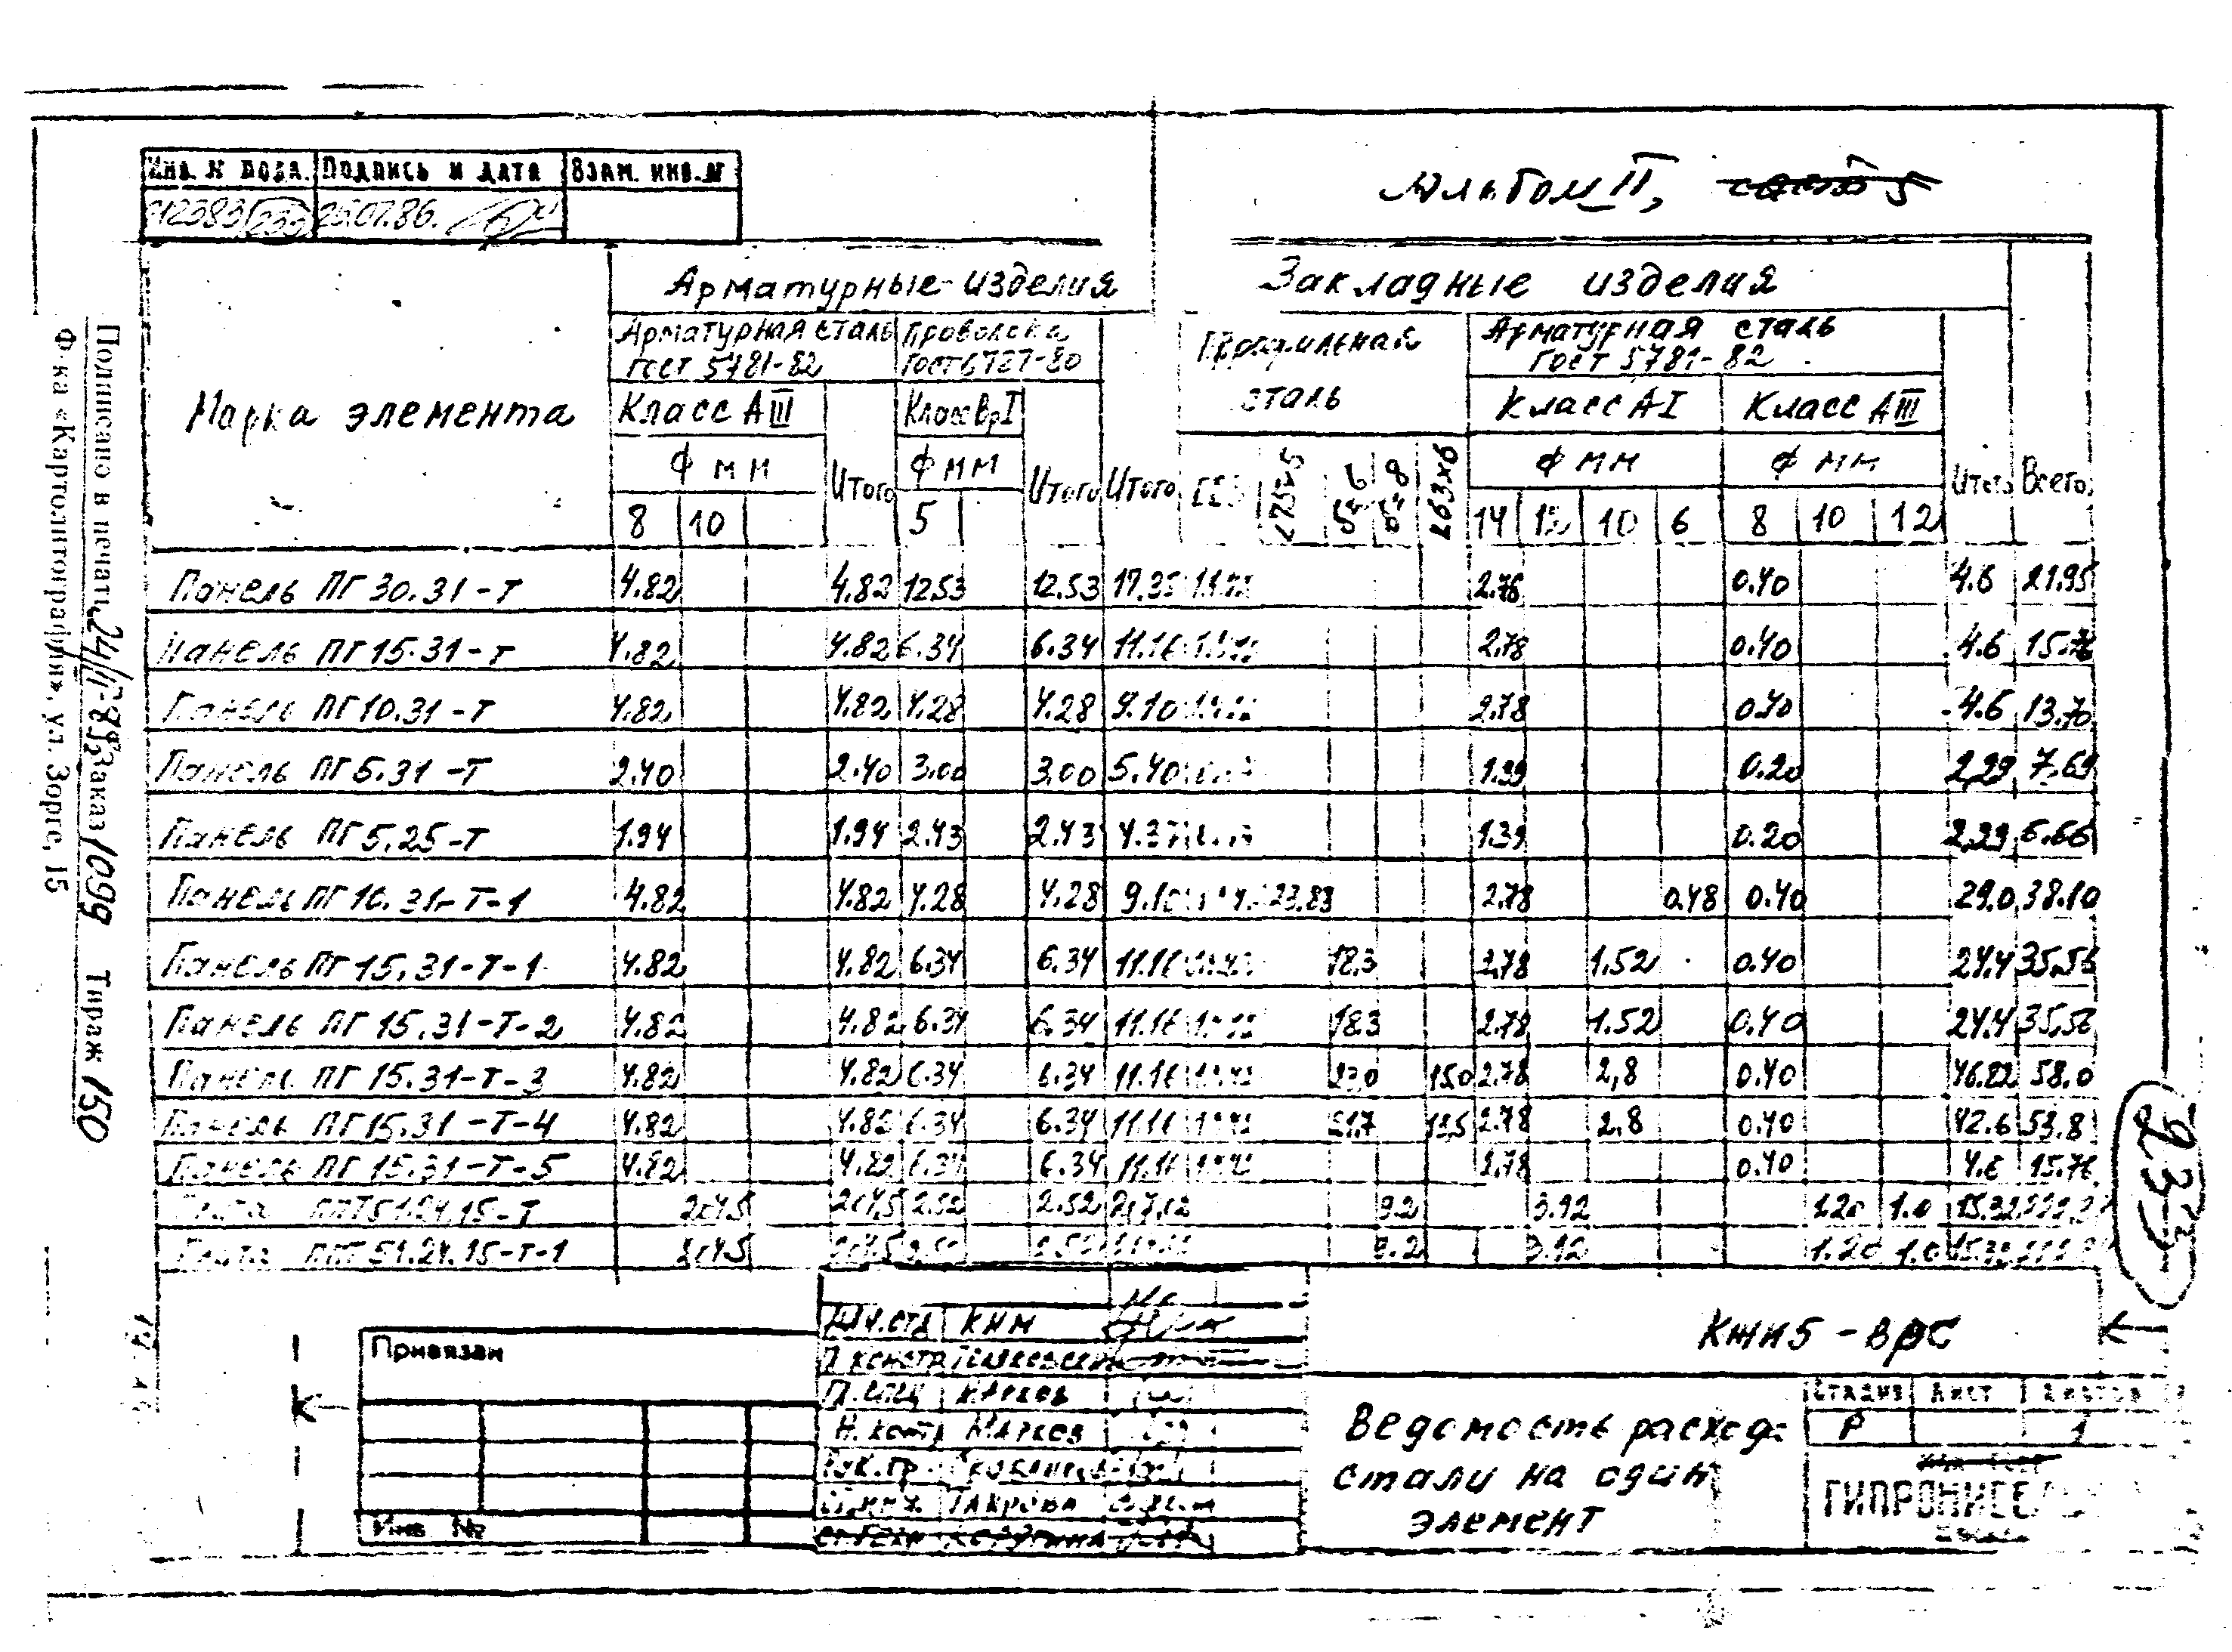 Инв. № подл. Подпись и дата Взам. инв. №
912383 233 25.07.86.
Альбом II, часть 5
Марка элемента
Арматурные изделия
Закладные изделия
Всего
Арматурная сталь ГОСТ 5781-82
Проволока ГОСТ 6727-80
Профильная сталь
Арматурная сталь ГОСТ 5781-82
Класс АIII
Класс ВрI
Класс АI
Класс АIII
Ф мм Итого Ф мм Итого Итого Ф мм Ф мм Итого
8 10 5 δ=6 δ=8 ∠63х6 14 12 10 6 8 10 12
Панель ПГ 30.31-Т 4.82 4.82 12.53 12.53 17.35 2.78 0.40 4.6 21.95
Панель ПГ 15.31-Т 4.82 4.82 6.34 6.34 11.16 2.78 0.40 4.6 15.76
Панель ПГ 10.31-Т 4.82 4.82 4.28 4.28 9.10 2.78 0.40 4.6 13.70
Панель ПГ 5.31-Т 2.40 2.40 3.00 3.00 5.40 1.39 0.20 2,29 7.69
Панель ПГ 5.25-Т 1.94 1.94 2.43 2.43 4.37 1.39 0.20 2,29 6.66
Панель ПГ 10.31-Т-1 4.82 4.82 4.28 4.28 9.10 23.83 2.78 0.48 0.40 29.0 38.10
Панель ПГ 15.31-Т-1 4.82 4.82 6.34 6.34 11.16 18.3 2.78 1.52 0.40 24.4 35.56
Панель ПГ 15.31-Т-2 4.82 4.82 6.34 6.34 11.16 18.3 2.78 1.52 0.40 24.4 35.56
Панель ПГ 15.31-Т-3 4.82 4.82 6.34 6.34 11.16 23.0 15.0 2.78 2,8 0.40 46.82 58.0
Панель ПГ 15.31-Т-4 4.82 4.82 6.34 6.34 11.16 21.7 13.5 2.78 2,8 0.40 42.6 53.8
Панель ПГ 15.31-Т-5 4.82 4.82 6.34 6.34 11.16 2.78 0.40 4.6 15.76
Плита ППТ 51.24.15-Т 204.5 204.5 2.52 2.52 207.02 9.2 3.92 1.20 1.0 15.32
Плита ППТ 51.24.15-Т-1 204.5 204.5 2.52 2.52 9.2 3.92 1.20 1.0 15.32
Привязан
Инв. №
Нач. отд КИМ
Гл. констр
Гл. спец Марков
Н. контр Марков
Рук. гр.
Ст. инж.
Ст. техн
КЖИ5-ВРС
Ведомость расход.
стали на один
элемент
Стадия Лист Листов
Р 1
233
Подписано в печать 24/II-87г. Заказ 1099 Тираж 150
Ф-ка «Картолитография», ул. Зорге, 15